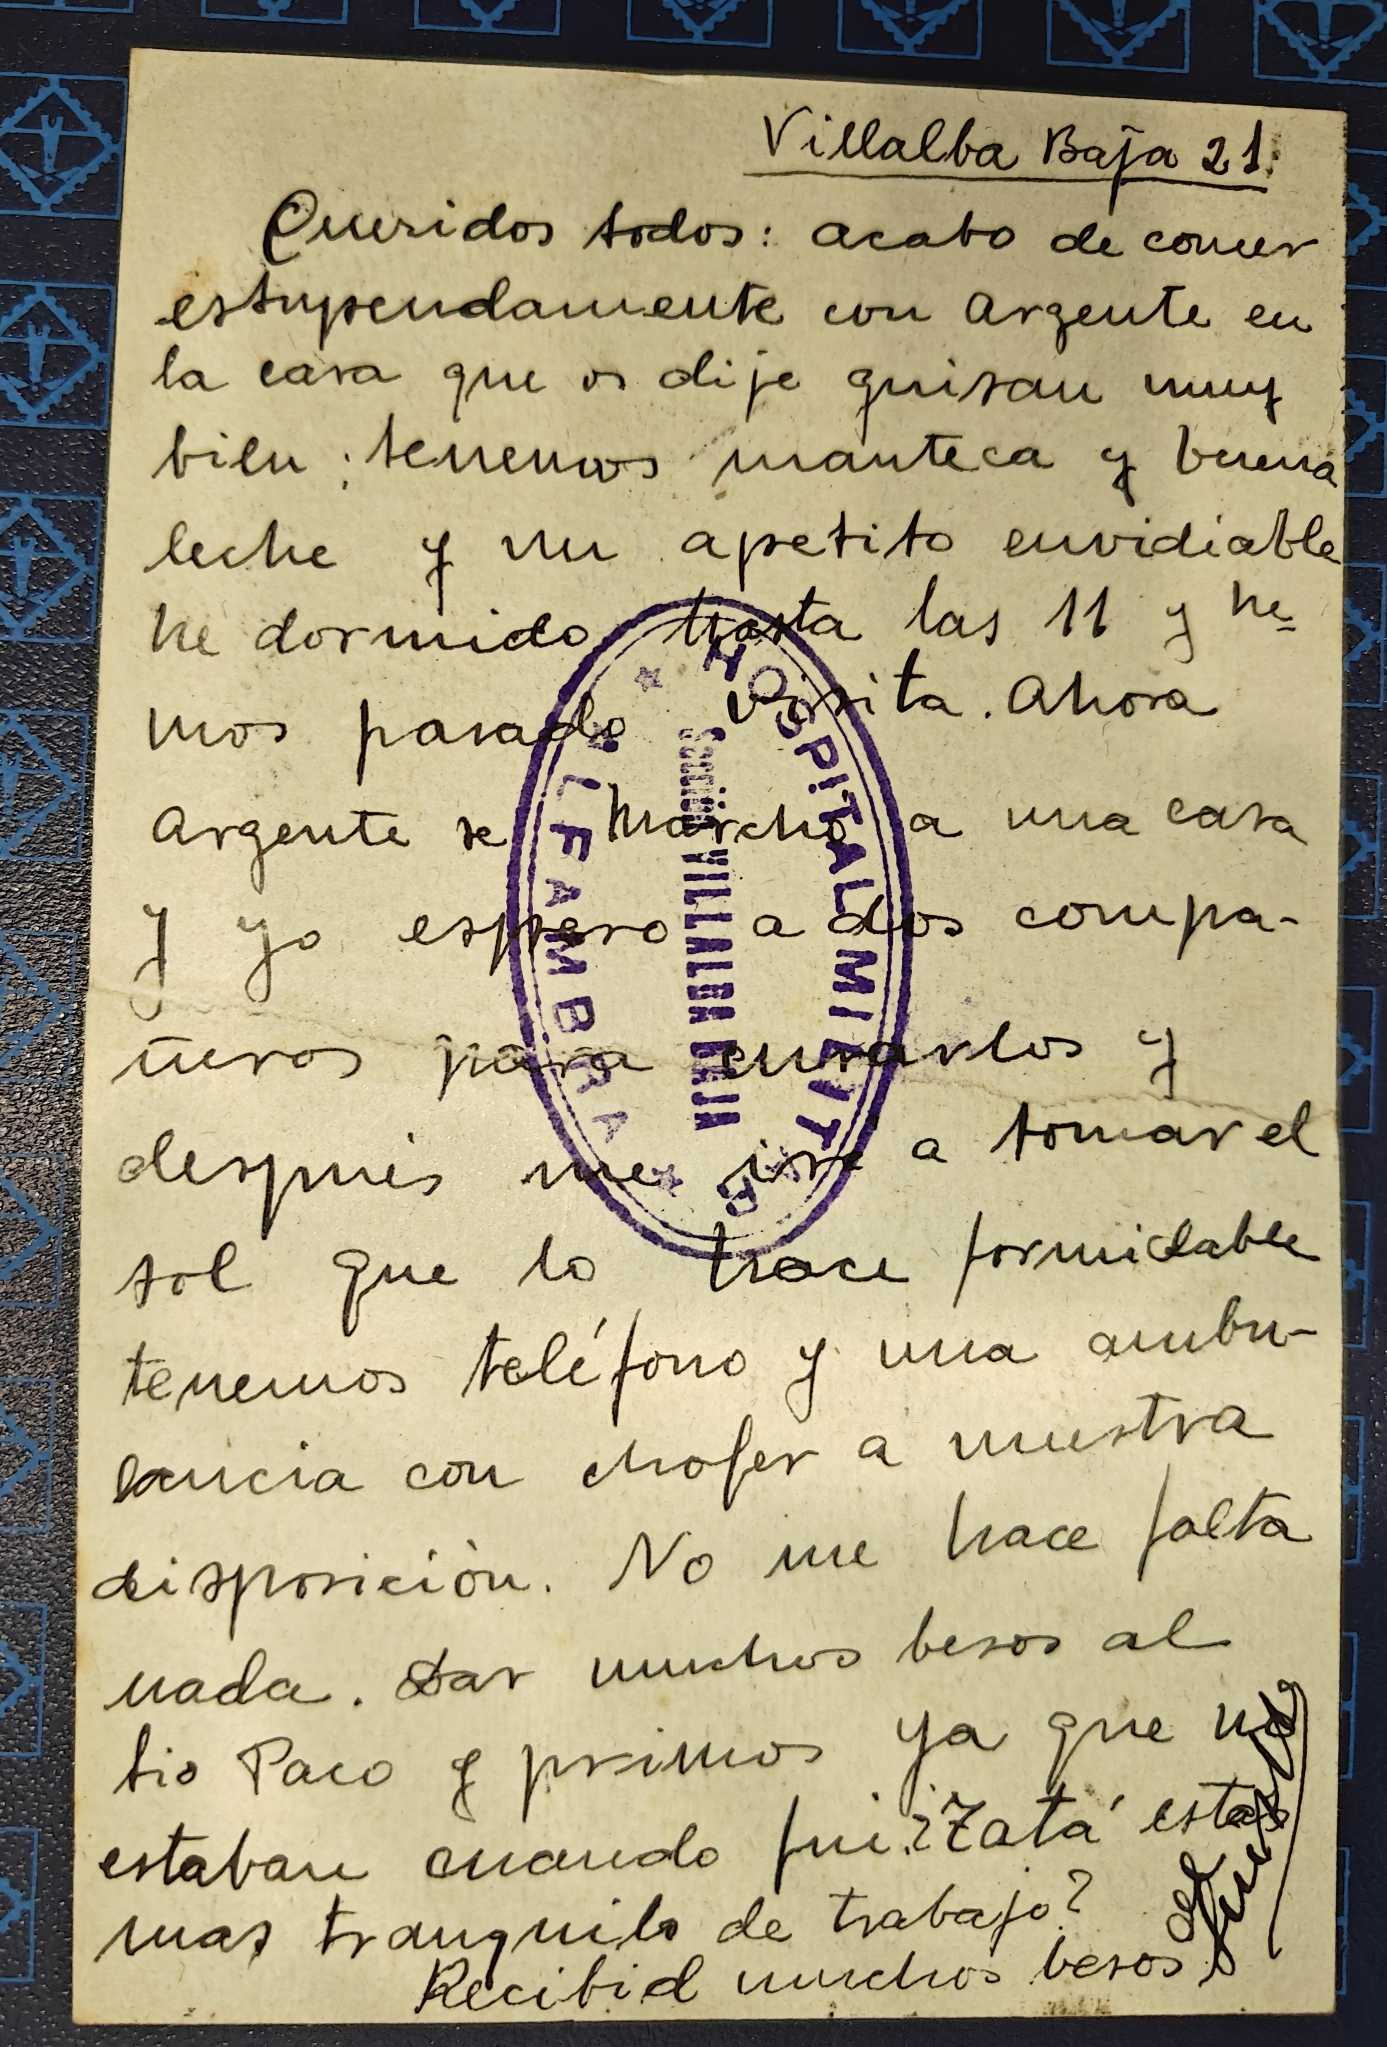 Villalba Baja 21.
Queridos todos: acabo de comer
estupendamente con Argente en
la casa que os dije guisan muy
bien; tenemos manteca y buena
leche y un apetito envidiable
he dormido hasta las 11 y he-
mos pasado visita. Ahora
Argente se marchó a una casa
y yo espero a dos compa-
ñeros para curarlos y
después me iré a tomar el
sol que lo hace formidable
tenemos teléfono y una ambu-
lancia con chofer a nuestra
disposición. No me hace falta
nada. Dar muchos besos al
tio Paco y primos ya que no
estaban cuando fui. ¿Tatá está
mas tranquilo de trabajo?
Recibid muchos besos
de
HOSPITAL MILITAR
Sección VILLALBA BAJA
ALFAMBRA